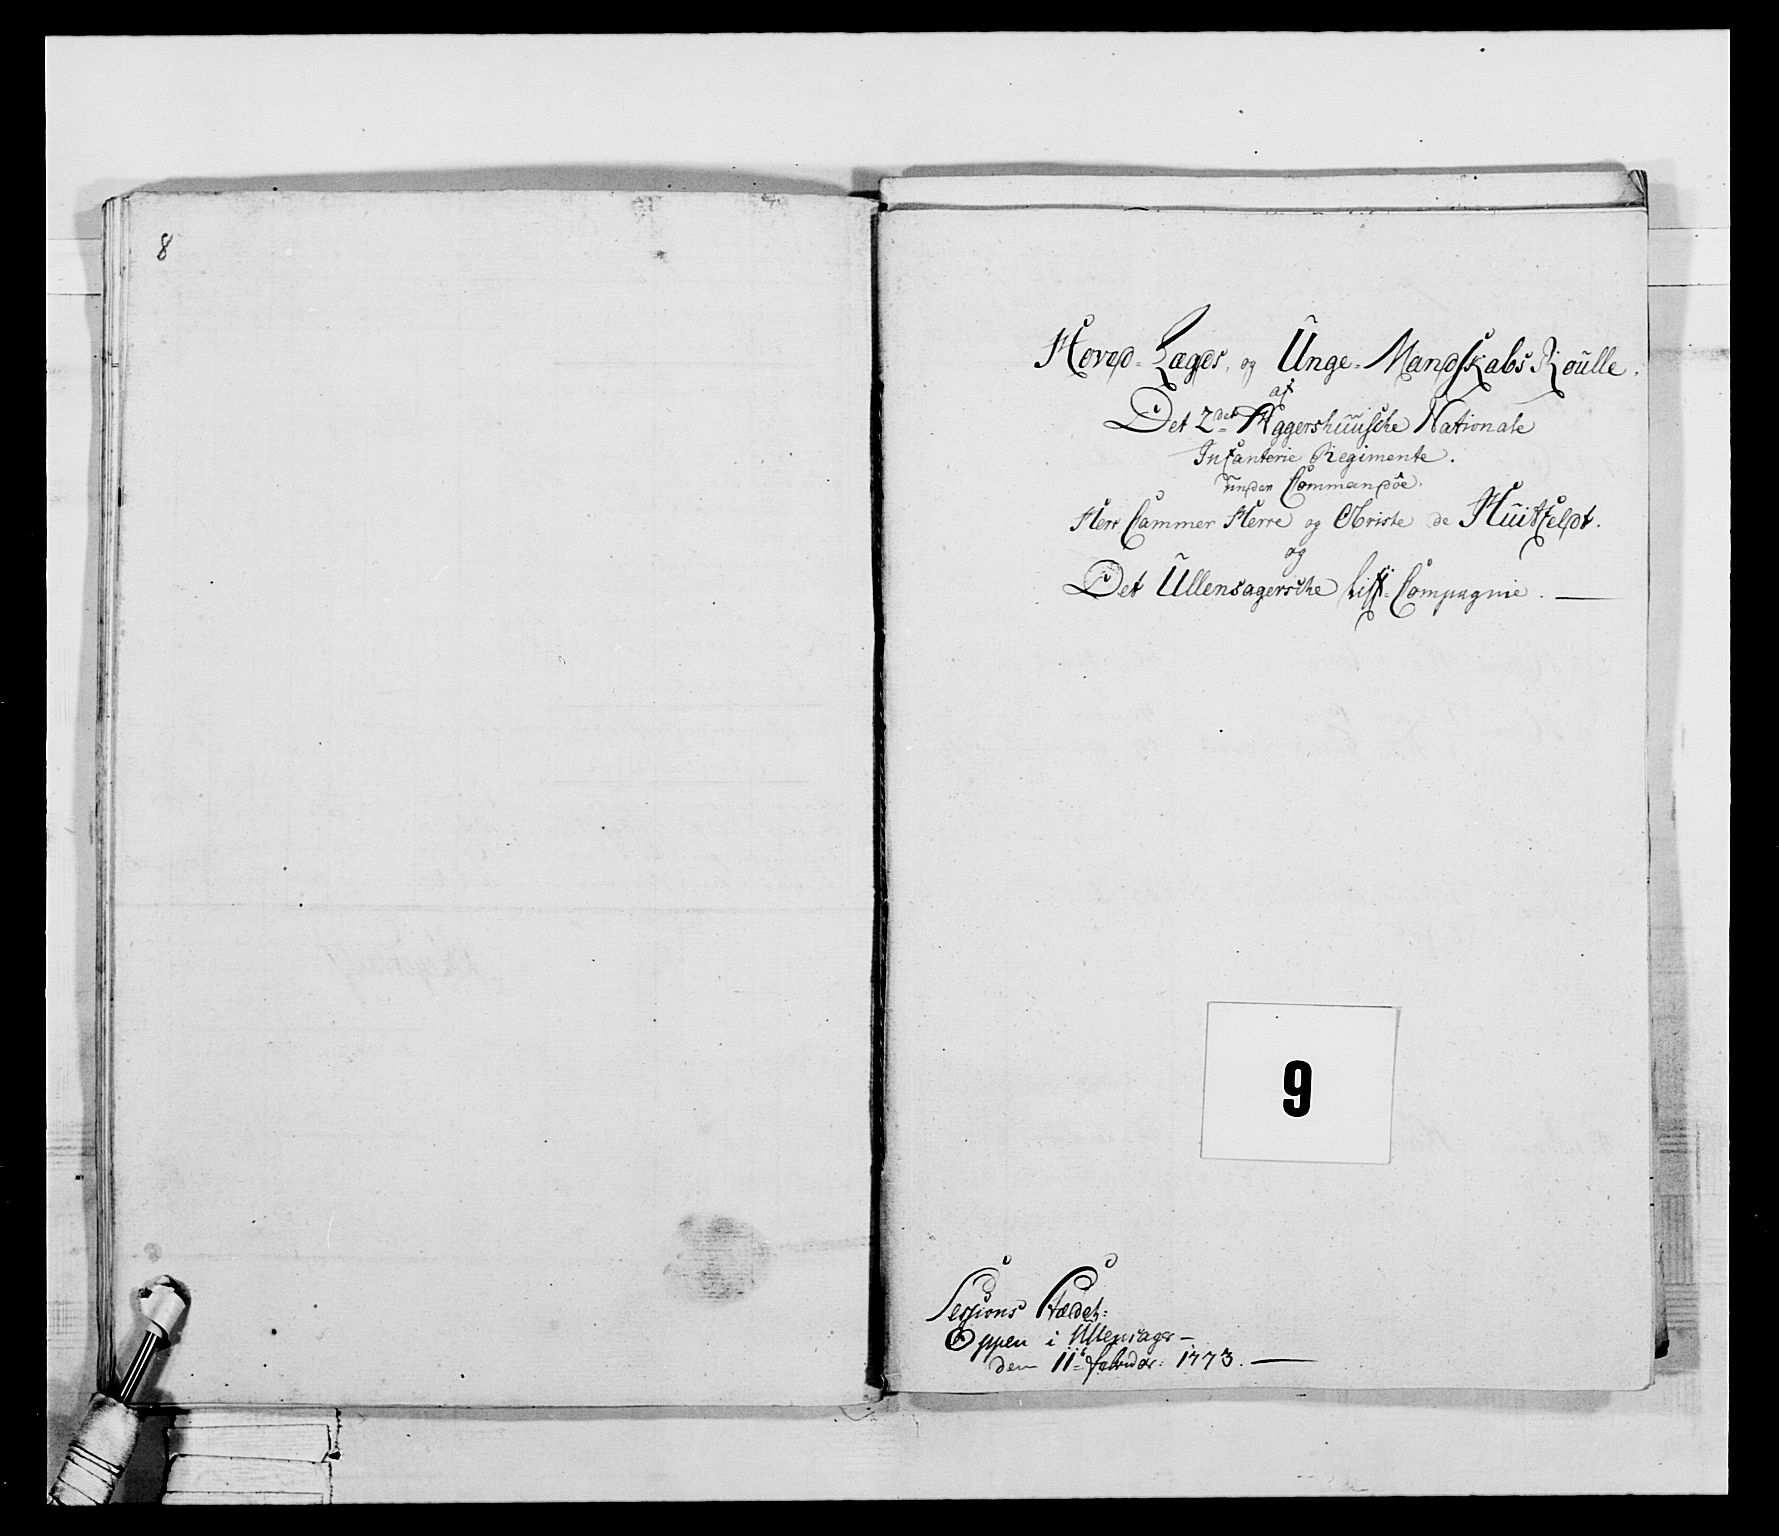 8
Hoved-Lægds, og Unge-Mandskabs Roulle.
af
Det 2det Aggershuusche Nationale
Infanterie Regimente.
under Commandoe.
Herr Cammer Herre og Obriste de Huitfeldt.
og
Det Ullensagersche Liff-Compagnie.
9
Sessions Stædet:
Eppen i Ullensager
den 11te februar: 1773.